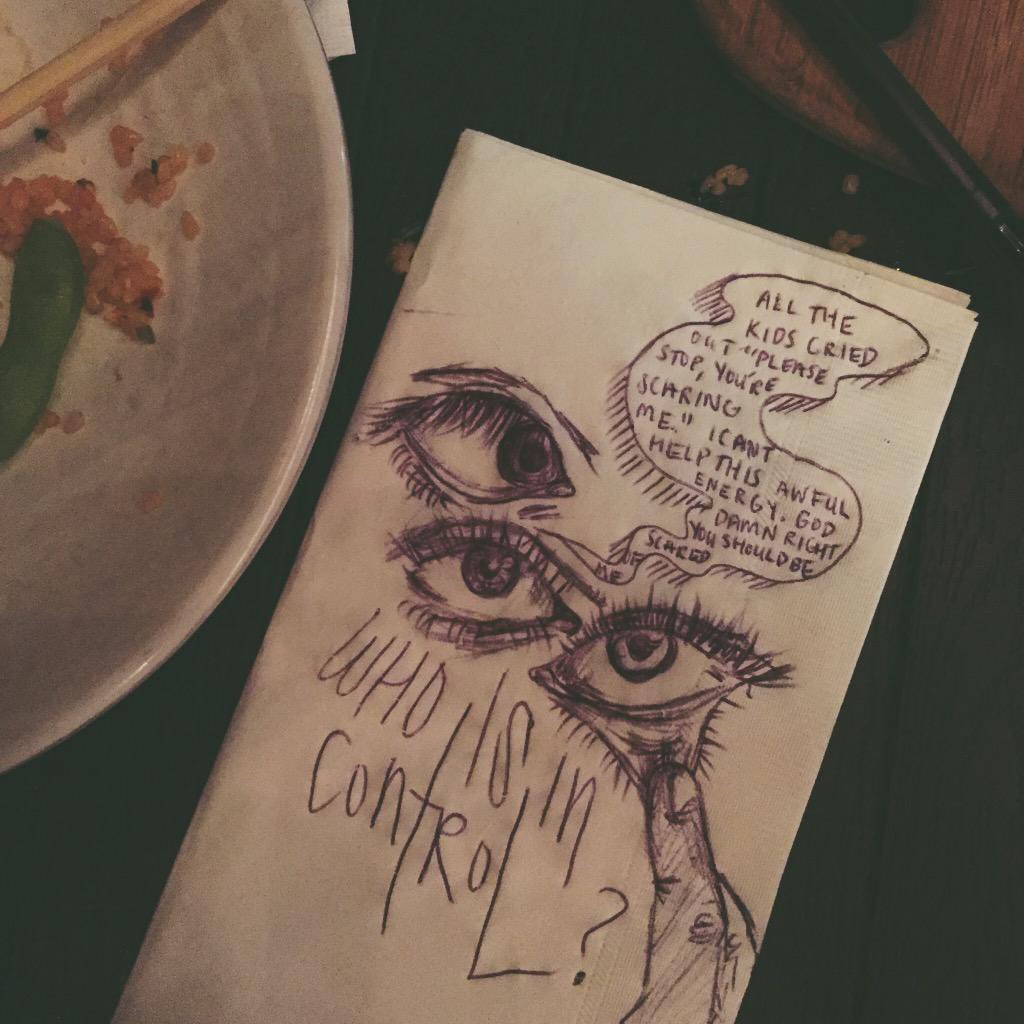 ALL THE
KIDS CRIED
OUT "PLEASE
STOP, YOU'RE
SCARING
ME." I CANT
HELP THIS AWFUL
ENERGY. GOD
DAMN RIGHT
YOU SHOULD BE
SCARED
OF
ME
WHO IS IN
CONTROL?